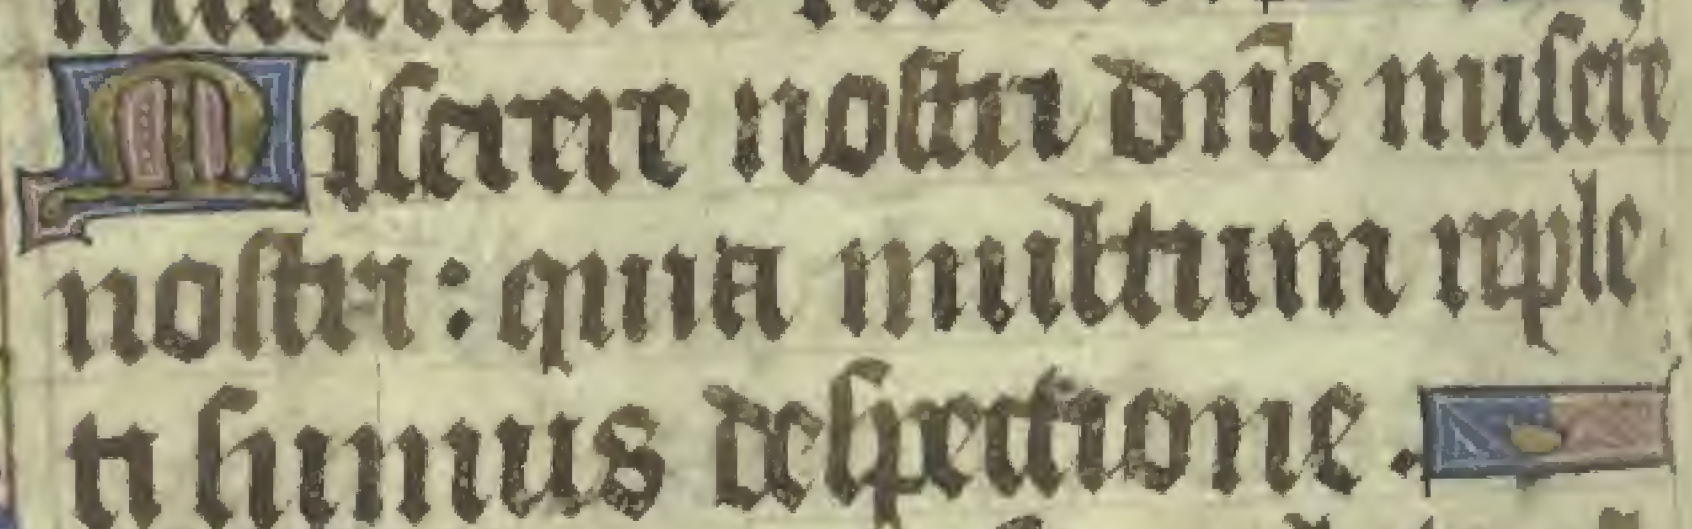 Miserere nostri dn̄e miserere
nostri: quia multum reple
ti sumus despectione.